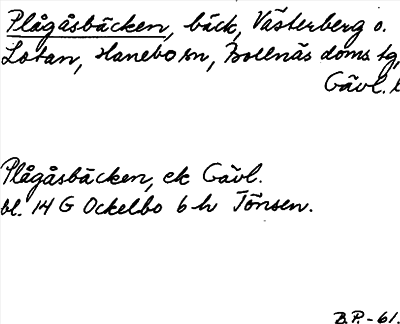 Plågåsbäcken, bäck, Västerberg o.
Lotan, Hanebo sn, Bollnäs doms tg,
Gävl. l
Plågåsbäcken, ek Gävl.
bl. 14 G Ockelbo 6 h Tönsen.
B.P.-61.